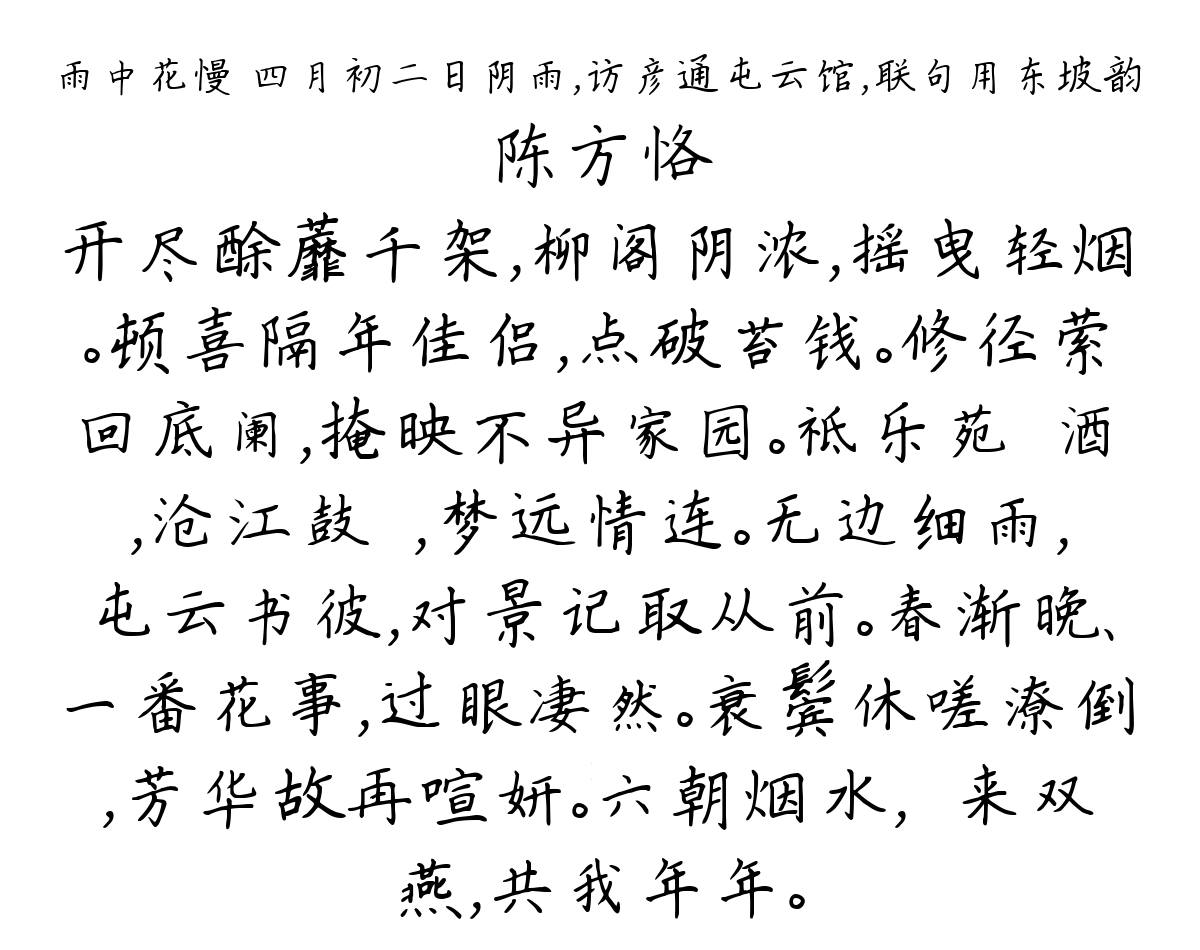 雨中花慢 四月初二日阴雨,访彦通屯云馆,联句用东坡韵
陈方恪
开尽酴蘼千架,柳阁阴浓,摇曳轻烟
。顿喜隔年佳侣,点破苔钱。修径萦
回底阑,掩映不异家园。祗乐苑 酒
,沧江鼓 ,梦远情连。无边细雨,
屯云书彼,对景记取从前。春渐晚、
一番花事,过眼凄然。衰鬓休嗟潦倒
,芳华故再喧妍。六朝烟水, 来双
燕,共我年年。